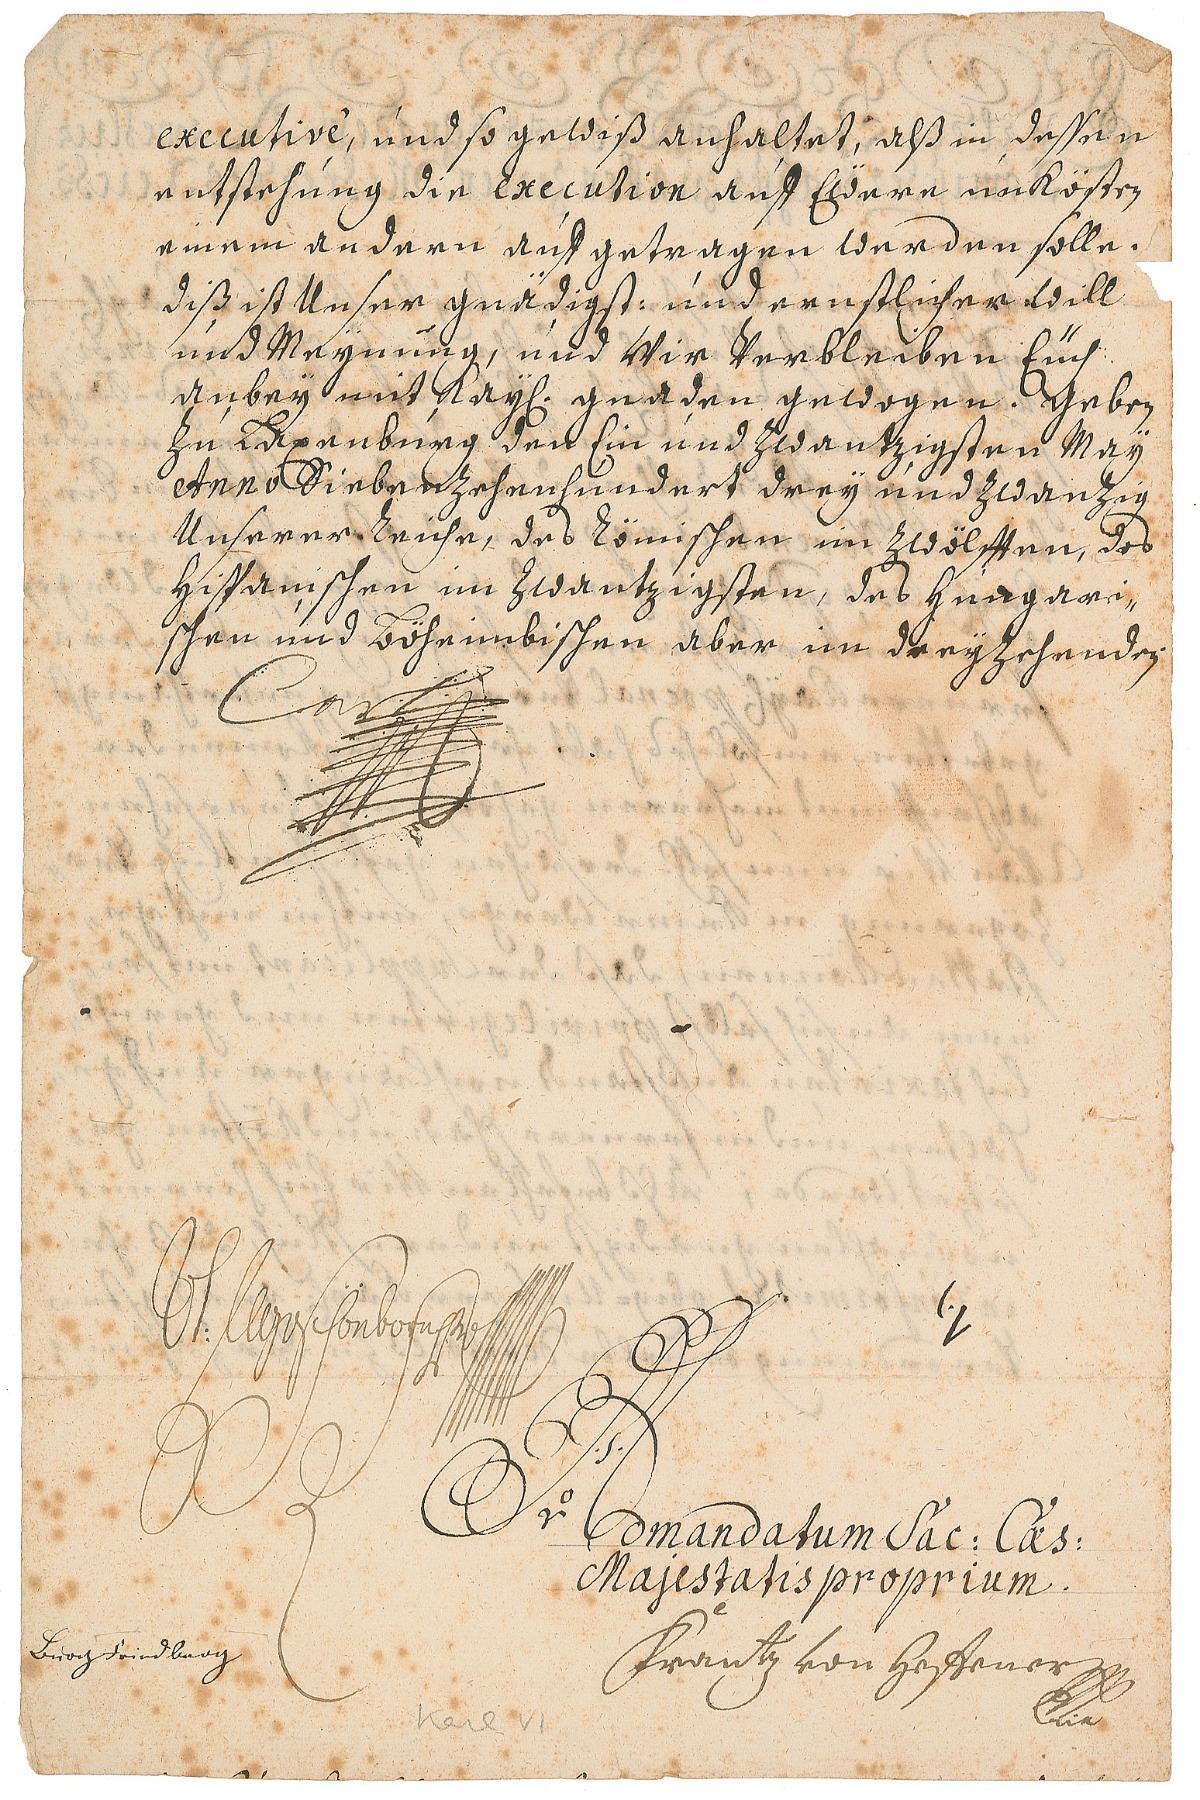 executivè, und so gewiß anhaltet, alß in dessen
entstehung die execution auff Ewere unkösten
einem andern auffgetragen werden solle.
diß ist Unser gnädigst: und ernstlicher will
und Meynung, und Wir Verbleiben Euch
anbey mit Kayl. gnaden gewogen. Geben
zu Laxenburg den Ein und Zwantzigsten May
Anno Siebenzehenhundert drey und Zwanzig
Unserer Reiche, des Römischen im Zwölfften, des
Hispanischen im Zwantzigsten, des Hungari„
schen und Böheimbischen aber im dreyzehenden
Carl
Vt: Schönborn
Ad mandatum Sac: Cæs:
Majestatis proprium.
Frantz von Hessener
Burg Friedberg
Karl VI